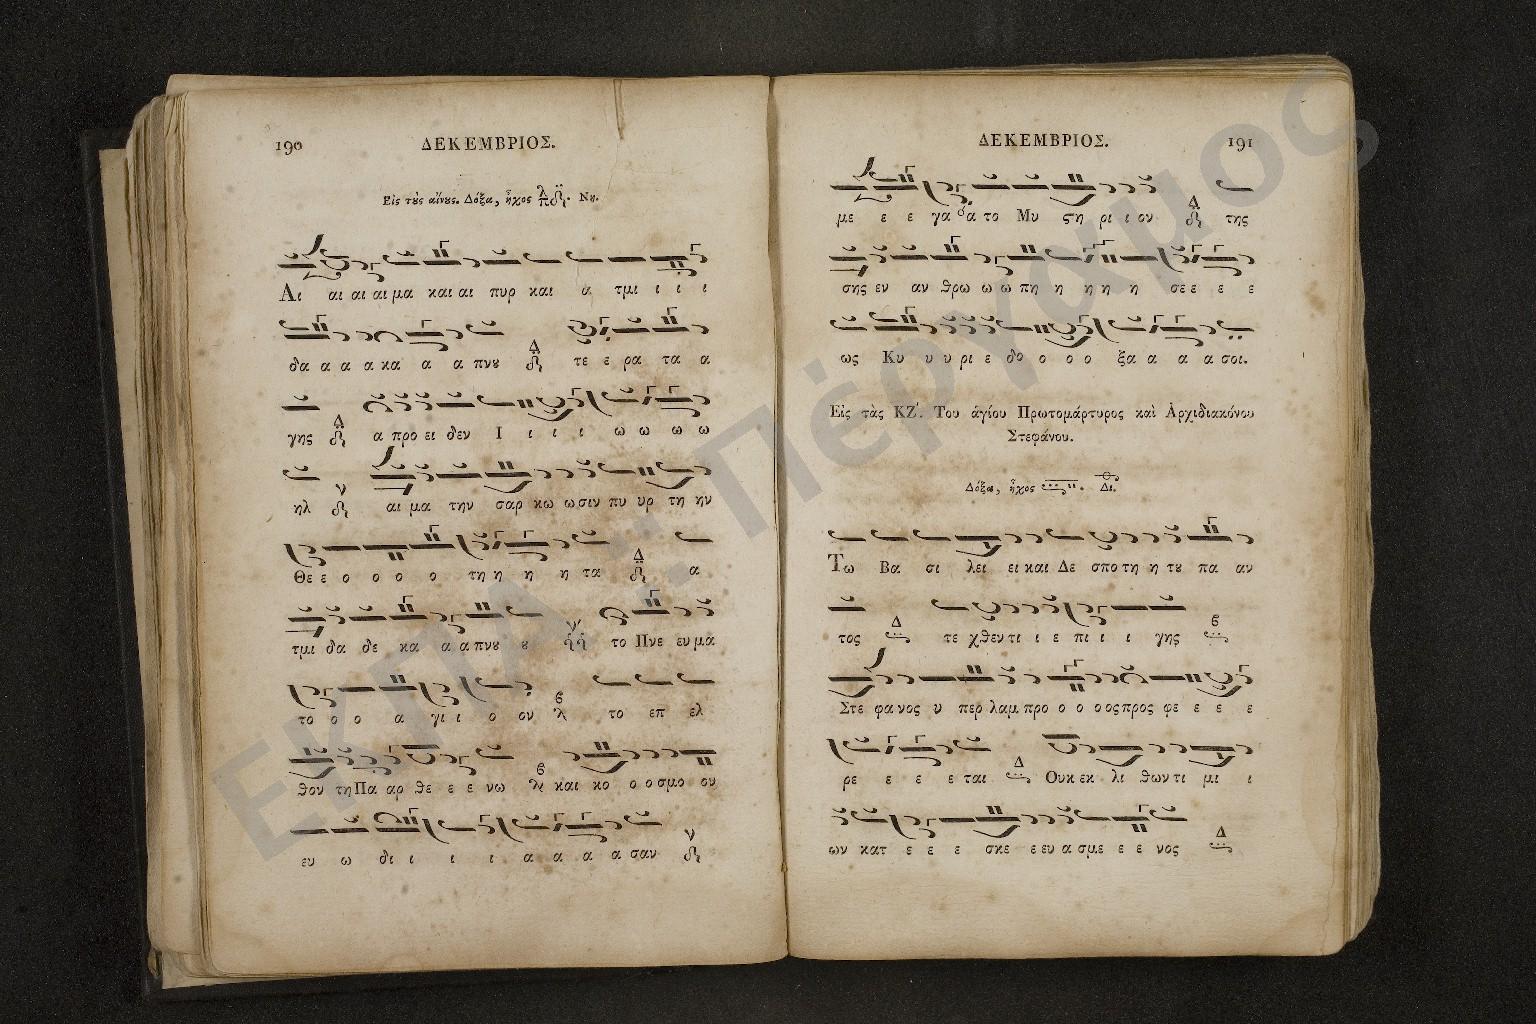 190
ΔΕΚΕΜΒΡΙΟΣ.
Εἰς τοὺς αἴνους. Δόξα, ἦχος Νη.
Αι αι αι αι μα και αι πυρ και α τμι ι ι ι
δα α α α κα α α πνου Δ τε ε ρα τα α
γης Δ α προ ει δεν Ι ι ι ι ω ω ω ω
ηλ αι μα την σαρ κω ω σιν πυ υρ τη ην
Θε ε ο ο ο ο τη η η η τα Δ α
τμι δα δε κα α α πνου ου το Πνε ευ μα
το ο ο α γι ι ο ον το επ ελ
θον τη Πα αρ θε ε ε νω και κο ο ο σμο ον
ευ ω δι ι ι ι α α α α σαν
ΔΕΚΕΜΒΡΙΟΣ.
191
με ε ε γα α α το Μυ στη ρι ι ον Δ της
σης εν αν θρω ω ω πη η η η η σε ε ε ε
ως Κυ υ υ ρι ε δο ο ο ο ξα α α α σοι.
Εἰς τὰς ΚΖ΄. Τοῦ ἁγίου Πρωτομάρτυρος καὶ Ἀρχιδιακόνου
Στεφάνου.
Δόξα, ἦχος Δι.
Τω Βα σι λει ει και Δε σπο τη η του πα αν
τος Δ τε χθεν τι ι ε πι ι ι γης
Στε φα νος υ περ λαμ προ ο ο ο ος προς φε ε ε ε
ρε ε ε ε ται Δ Ουκ εκ λι θων τι μι ι
ων κατ ε ε ε σκε ε ευ α σμε ε ε νος Δ
ΕΚΠΑ :: Πέργαμος